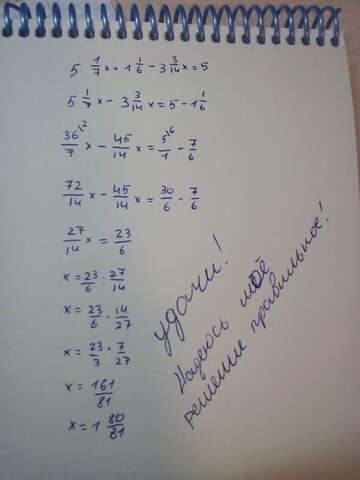 5 1/7 x + 1 1/6 - 3 3/14 x = 5
5 1/7 x - 3 3/14 x = 5 - 1 1/6
36\2/7 x - 45/14 x = 5\6/1 - 7/6
72/14 x - 45/14 x = 30/6 - 7/6
27/14 x = 23/6
x = 23/6 : 27/14
x = 23/6 · 14/27
x = 23/3 · 7/27
x = 161/81
x = 1 80/81
удачи!
Надеюсь моё
решение правильное!